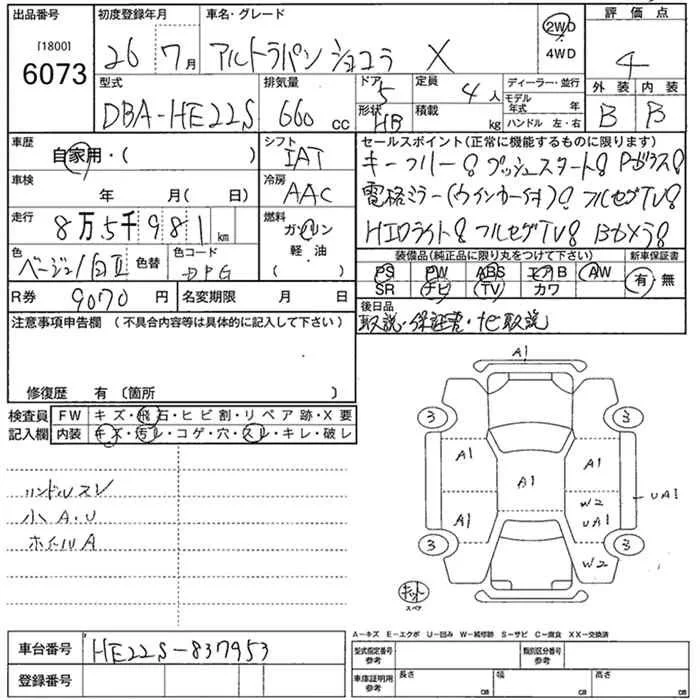 出品番号 初度登録年月 車名・グレード 評価点
[1800] 6073 26 7月 アルトラパン ショコラ X 2WD 4WD 4
型式 排気量 ドア 定員 ディーラー・並行 外装 内装
DBA-HE22S 660 cc 5 4人 モデル年式 年 B B
形状 HB 積載 kg ハンドル 左・右
車歴 自家用・( ) シフト IAT
セールスポイント(正常に機能するものに限ります)
キーフリー! プッシュスタート! Pガラス!
車検 年 月( 日) 冷房 AAC
電格ミラー(ウインカー付)! フルセグTV!
走行 8万5千981km 燃料 ガソリン 軽・油
HIDライト! フルセグTV! Bカメラ!
色 ベージュ/白Ⅱ 色替 色コード
装備品(純正品に限り丸をつけて下さい) 新車保証書
PS PW ABS エアB AW 有・無
SR ナビ TV カワ
R券 9070円 名変期限 月 日
後日品
取説・保証書・ナビ取説
注意事項申告欄(不具合内容等は具体的に記入して下さい)
修復歴 有(箇所 )
検査員記入欄 FW キズ・飛石・ヒビ割・リペア跡・X要
内装 キズ・汚レ・コゲ・穴・スレ・キレ・破レ
ハンドルスレ
小A・U
ホイールA
A1
3 3
A1 A1 A1
UA1
W2
A1 UA1
3 3
W2
キット
スペア
A-キズ E-エクボ U-凹み W-補修跡 S-サビ C-腐食 XX-交換済
車台番号 HE22S-837953
型式指定番号 参考 類別区分番号 参考
登録番号
車庫証明用 参考 長さ cm 幅 cm 高さ cm